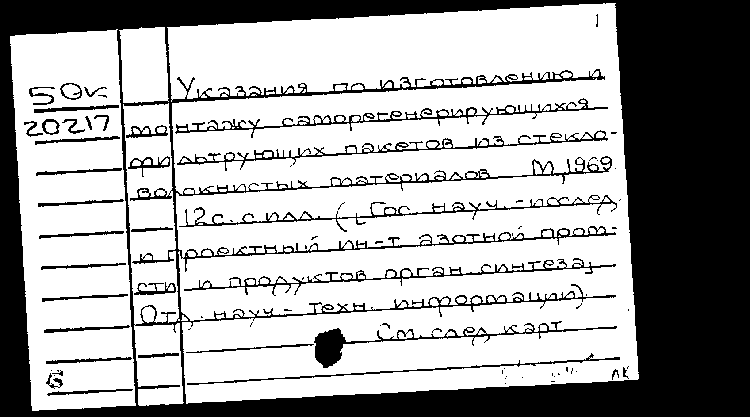 1
50к Указания по изготовлению и
20217 монтажу саморегенерирующихся
фильтрующих пакетов из стекло-
волокнистых материалов М, 1969
12с. с илл. (Гос. науч.-исслед.
и проектный ин-т азотной пром-
сти и продуктов орган. синтеза,
Отд. науч.- техн. информации)
См. след карт.
Б
лк